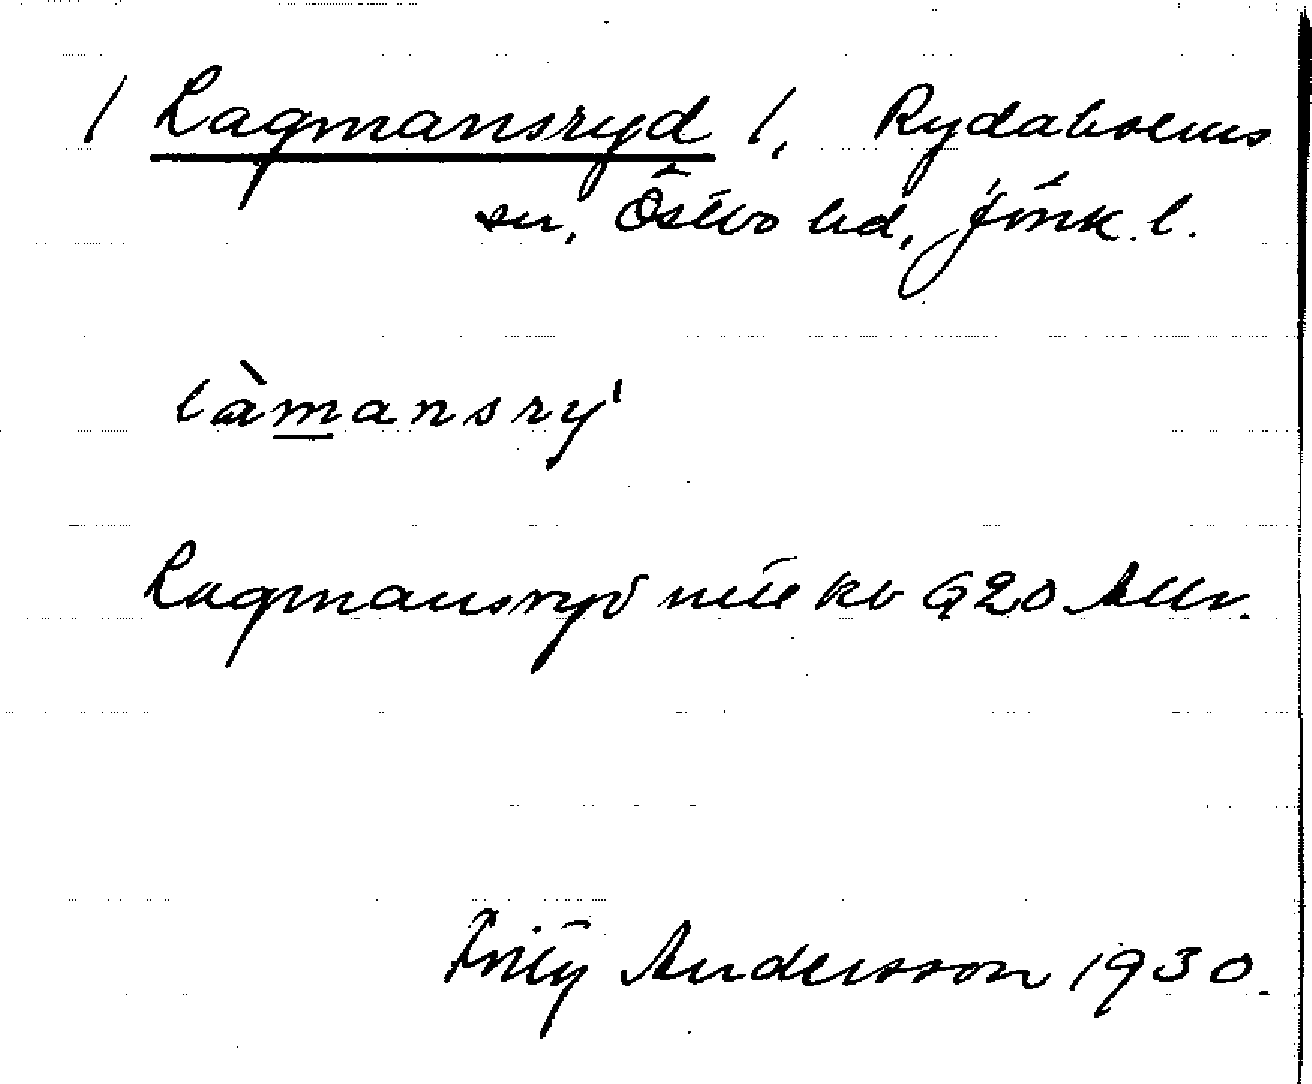 / Lagmansryd /, Rydaholms
sn, Östbo hd, Jönk. l.
làmansry'
Lagmansryd 920 Allv.
Fritz Andersson 1930.